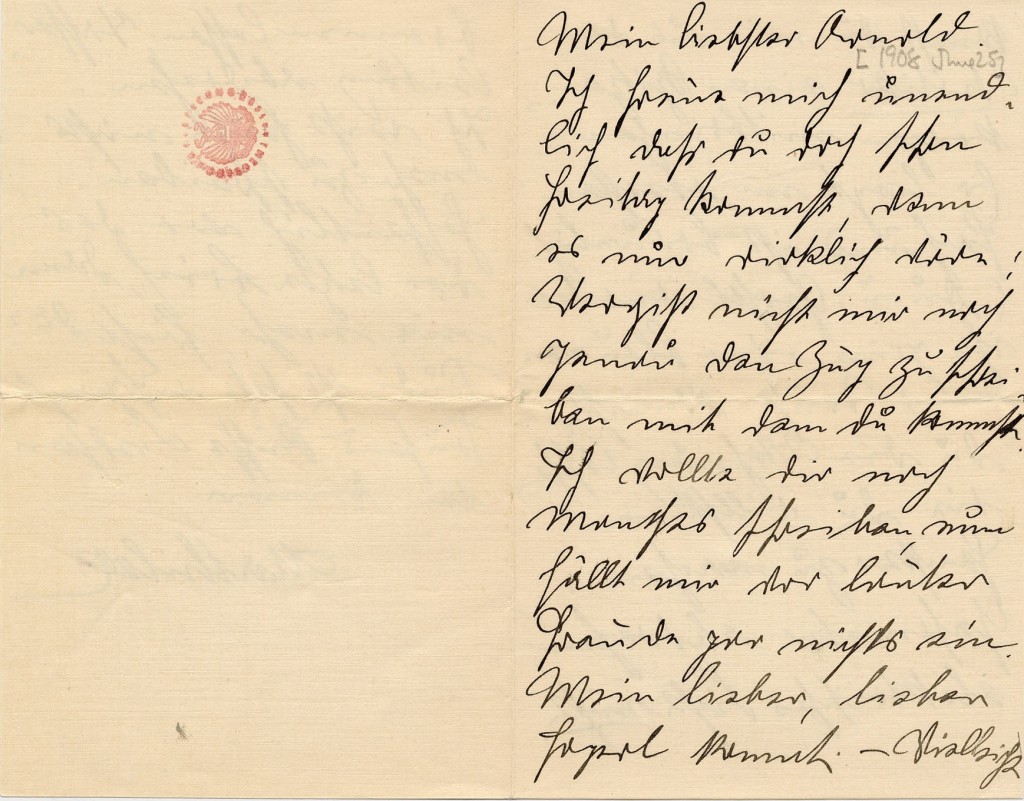 Mein liebster Arnold.
[1908 June 25]
Ich freue mich unend-
lich dass du doch schon
Freitag kommst, wenn
es nur wirklich wäre!
Vergist nicht mir noch
genau den Zug zu schrei-
ben mit dem du kommst.
Ich wollte dir noch
manches schreiben, nun
fällt mir vor lauter
Freude gar nichts ein.
Mein lieber, lieber
kommt. – Vielleicht